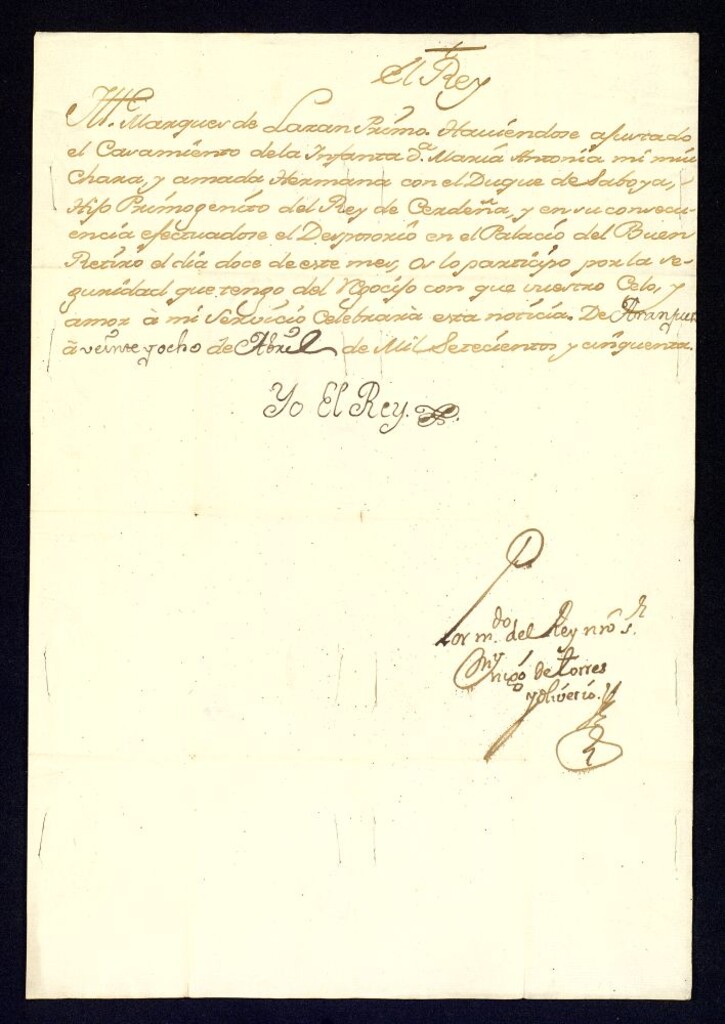 El Rey
Ill.e Marques de Lazan Primo. Haviendose ajustado
el Casamiento dela Infanta D.a Maria Antonia mi mui
Chara, y amada Hermana con el Duque de Saboya,
Hijo Primogenito del Rey de Cerdeña, y en su consecu-
encia efectuadose el Desposorio en el Palacio del Buen
Retiro el dia doce de este mes, Os lo participo por la se-
guridad que tengo del Regocijo con que vuestro Celo, y
amor à mi Servicio Celebrarà esta noticia. De Aranjuez
à veinte y ocho de Abril de Mil Setecientos y cinquenta.
Yo El Rey.
Por m.do del Rey nro s.r
de Torres
y oliverio.